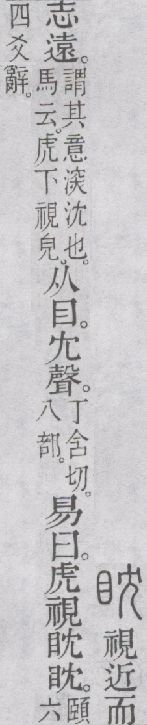 眈 視近而
志遠。謂其意㴱沈也。馬云。虎下視皃。从目。冘聲。丁含切。八部。易曰。虎視眈眈。頤六
四爻辭。